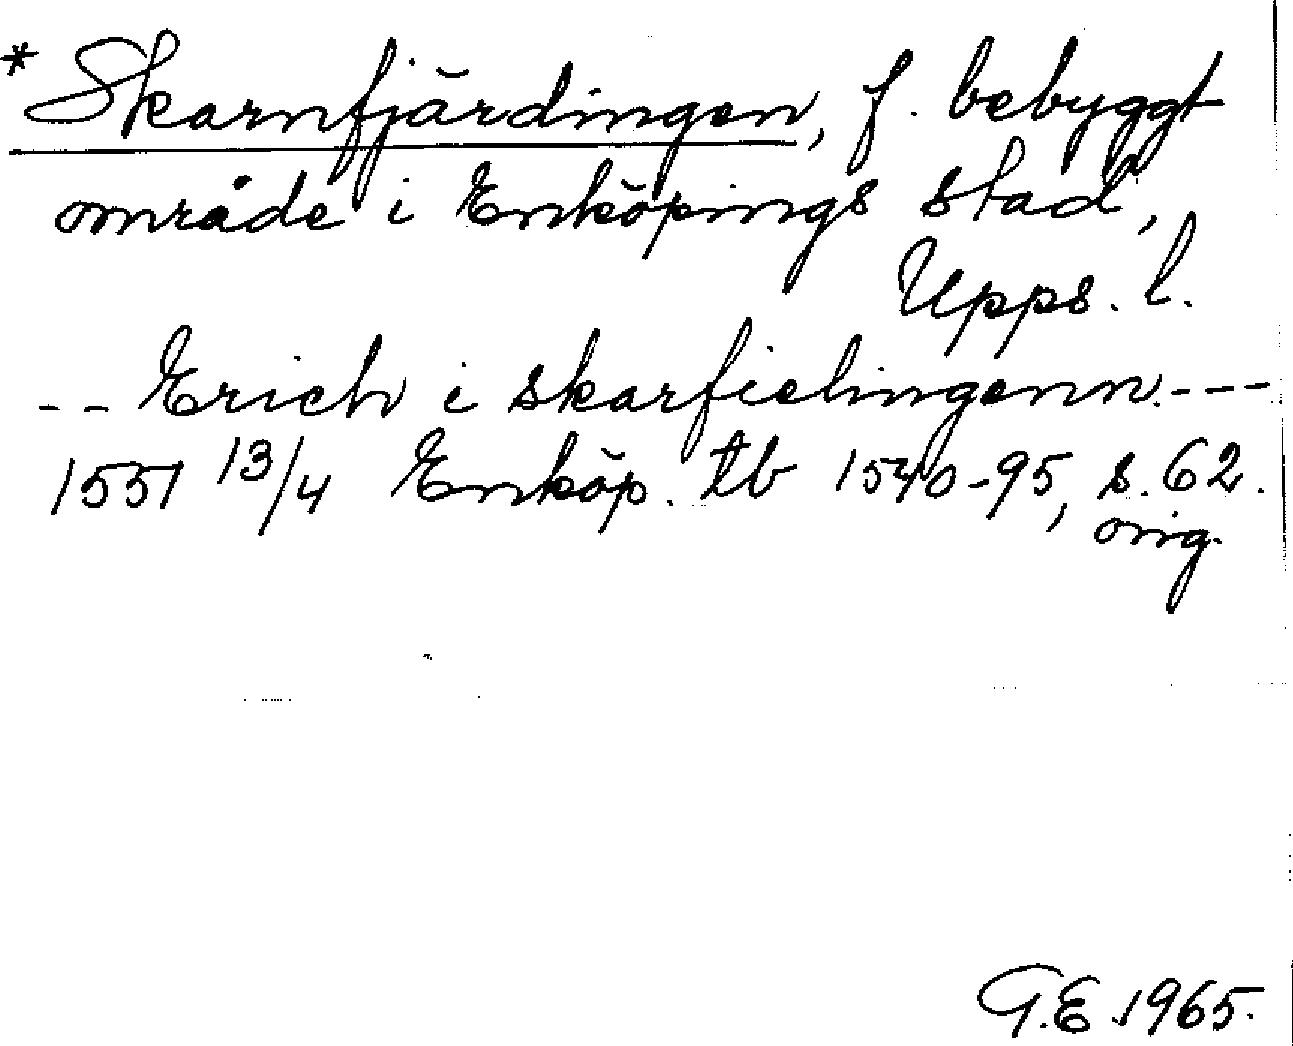 * Skarnfjärdingen, f. bebyggt
område i Enköpings stad,
Upps. l.
-- Erich i skarfielingenn. ---
1551 13/4 Enköp. tb 1540-95, s. 62.
orig.
G.E. 1965.